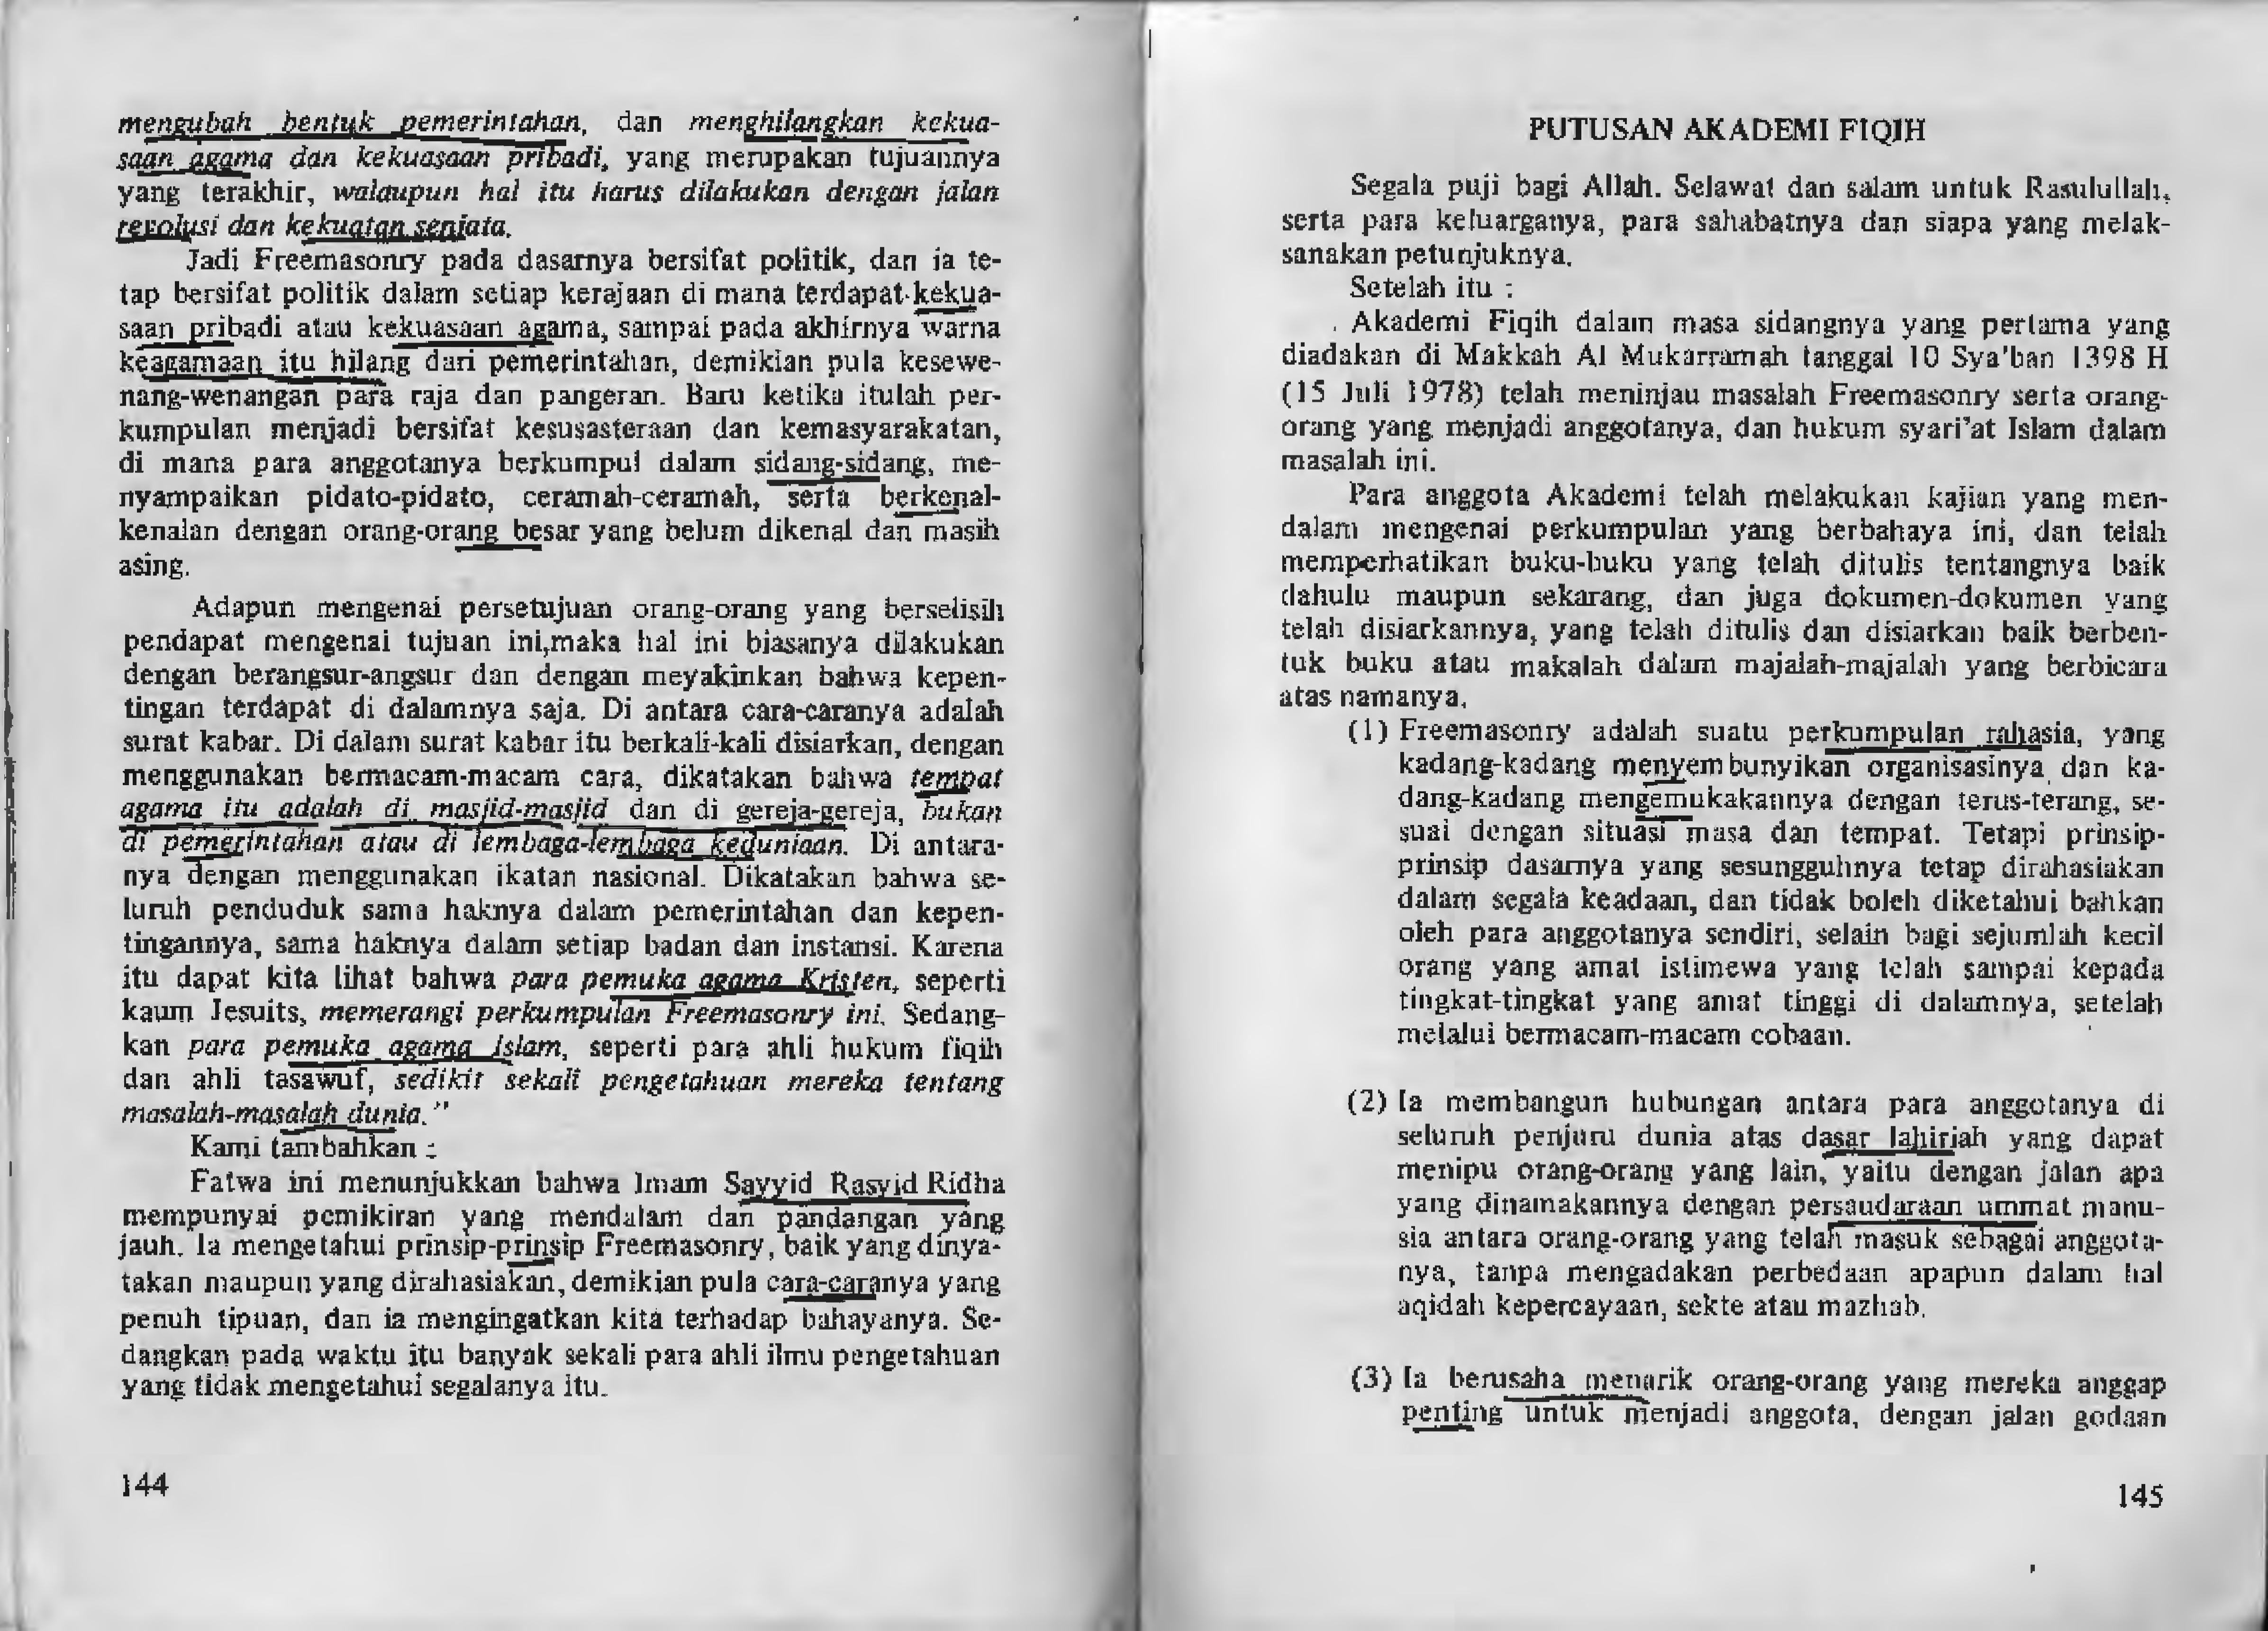 mengubah bentuk pemerintahan, dan menghilangkan kekua-
saan agama dan kekuasaan pribadi, yang merupakan tujuannya
yang terakhir, walaupun hal itu harus dilakukan dengan jalan
revolusi dan kekuatan senjata.
Jadi Freemasonry pada dasarnya bersifat politik, dan ia te-
tap bersifat politik dalam setiap kerajaan di mana terdapat kekua-
saan pribadi atau kekuasaan agama, sampai pada akhirnya warna
keagamaan itu hilang dari pemerintahan, demikian pula kesewe-
nang-wenangan para raja dan pangeran. Baru ketika itulah per-
kumpulan menjadi bersifat kesusasteraan dan kemasyarakatan,
di mana para anggotanya berkumpul dalam sidang-sidang, me-
nyampaikan pidato-pidato, ceramah-ceramah, serta berkenal-
kenalan dengan orang-orang besar yang belum dikenal dan masih
asing.
Adapun mengenai persetujuan orang-orang yang berselisih
pendapat mengenai tujuan ini,maka hal ini biasanya dilakukan
dengan berangsur-angsur dan dengan meyakinkan bahwa kepen-
tingan terdapat di dalamnya saja. Di antara cara-caranya adalah
surat kabar. Di dalam surat kabar itu berkali-kali disiarkan, dengan
menggunakan bermacam-macam cara, dikatakan bahwa tempat
agama itu adalah di masjid-masjid dan di gereja-gereja, bukan
di pemerintahan atau di lembaga-lembaga keduniaan. Di antara-
nya dengan menggunakan ikatan nasional. Dikatakan bahwa se-
luruh penduduk sama haknya dalam pemerintahan dan kepen-
tingannya, sama haknya dalam setiap badan dan instansi. Karena
itu dapat kita lihat bahwa para pemuka agama Kristen, seperti
kaum Jesuits, memerangi perkumpulan Freemasonry ini. Sedang-
kan para pemuka agama Islam, seperti para ahli hukum fiqih
dan ahli tasawuf, sedikit sekali pengetahuan mereka tentang
masalah-masalah dunia."
Kami tambahkan :
Fatwa ini menunjukkan bahwa Imam Sayyid Rasyid Ridha
mempunyai pemikiran yang mendalam dan pandangan yang
jauh. Ia mengetahui prinsip-prinsip Freemasonry, baik yang dinya-
takan maupun yang dirahasiakan, demikian pula cara-caranya yang
penuh tipuan, dan ia mengingatkan kita terhadap bahayanya. Se-
dangkan pada waktu itu banyak sekali para ahli ilmu pengetahuan
yang tidak mengetahui segalanya itu.
144
PUTUSAN AKADEMI FIQIH
Segala puji bagi Allah. Selawat dan salam untuk Rasulullah,
serta para keluarganya, para sahabatnya dan siapa yang melak-
sanakan petunjuknya.
Setelah itu :
Akademi Fiqih dalam masa sidangnya yang pertama yang
diadakan di Makkah Al Mukarramah tanggal 10 Sya'ban 1398 H
(15 Juli 1978) telah meninjau masalah Freemasonry serta orang-
orang yang menjadi anggotanya, dan hukum syari'at Islam dalam
masalah ini.
Para anggota Akademi telah melakukan kajian yang men-
dalam mengenai perkumpulan yang berbahaya ini, dan telah
memperhatikan buku-buku yang telah ditulis tentangnya baik
dahulu maupun sekarang, dan juga dokumen-dokumen yang
telah disiarkannya, yang telah ditulis dan disiarkan baik berben-
tuk buku atau makalah dalam majalah-majalah yang berbicara
atas namanya.
(1) Freemasonry adalah suatu perkumpulan rahasia, yang
kadang-kadang menyembunyikan organisasinya dan ka-
dang-kadang mengemukakannya dengan terus-terang, se-
suai dengan situasi masa dan tempat. Tetapi prinsip-
prinsip dasarnya yang sesungguhnya tetap dirahasiakan
dalam segala keadaan, dan tidak boleh diketahui bahkan
oleh para anggotanya sendiri, selain bagi sejumlah kecil
orang yang amat istimewa yang telah sampai kepada
tingkat-tingkat yang amat tinggi di dalamnya, setelah
melalui bermacam-macam cobaan.
(2) Ia membangun hubungan antara para anggotanya di
seluruh penjuru dunia atas dasar lahiriah yang dapat
menipu orang-orang yang lain, yaitu dengan jalan apa
yang dinamakannya dengan persaudaraan ummat manu-
sia antara orang-orang yang telah masuk sebagai anggota-
nya, tanpa mengadakan perbedaan apapun dalam hal
aqidah kepercayaan, sekte atau mazhab.
(3) Ia berusaha menarik orang-orang yang mereka anggap
penting untuk menjadi anggota, dengan jalan godaan
145